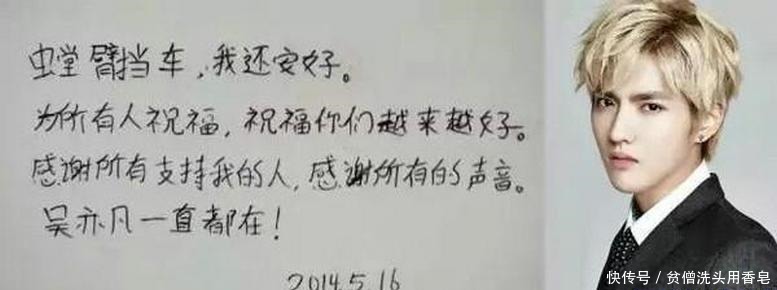 螳臂挡车，我还安好。
为所有人祝福，祝福你们越来越好。
感谢所有支持我的人，感谢所有的声音。
吴亦凡一直都在！
2014.5.16
快传号／贫僧洗头用香皂